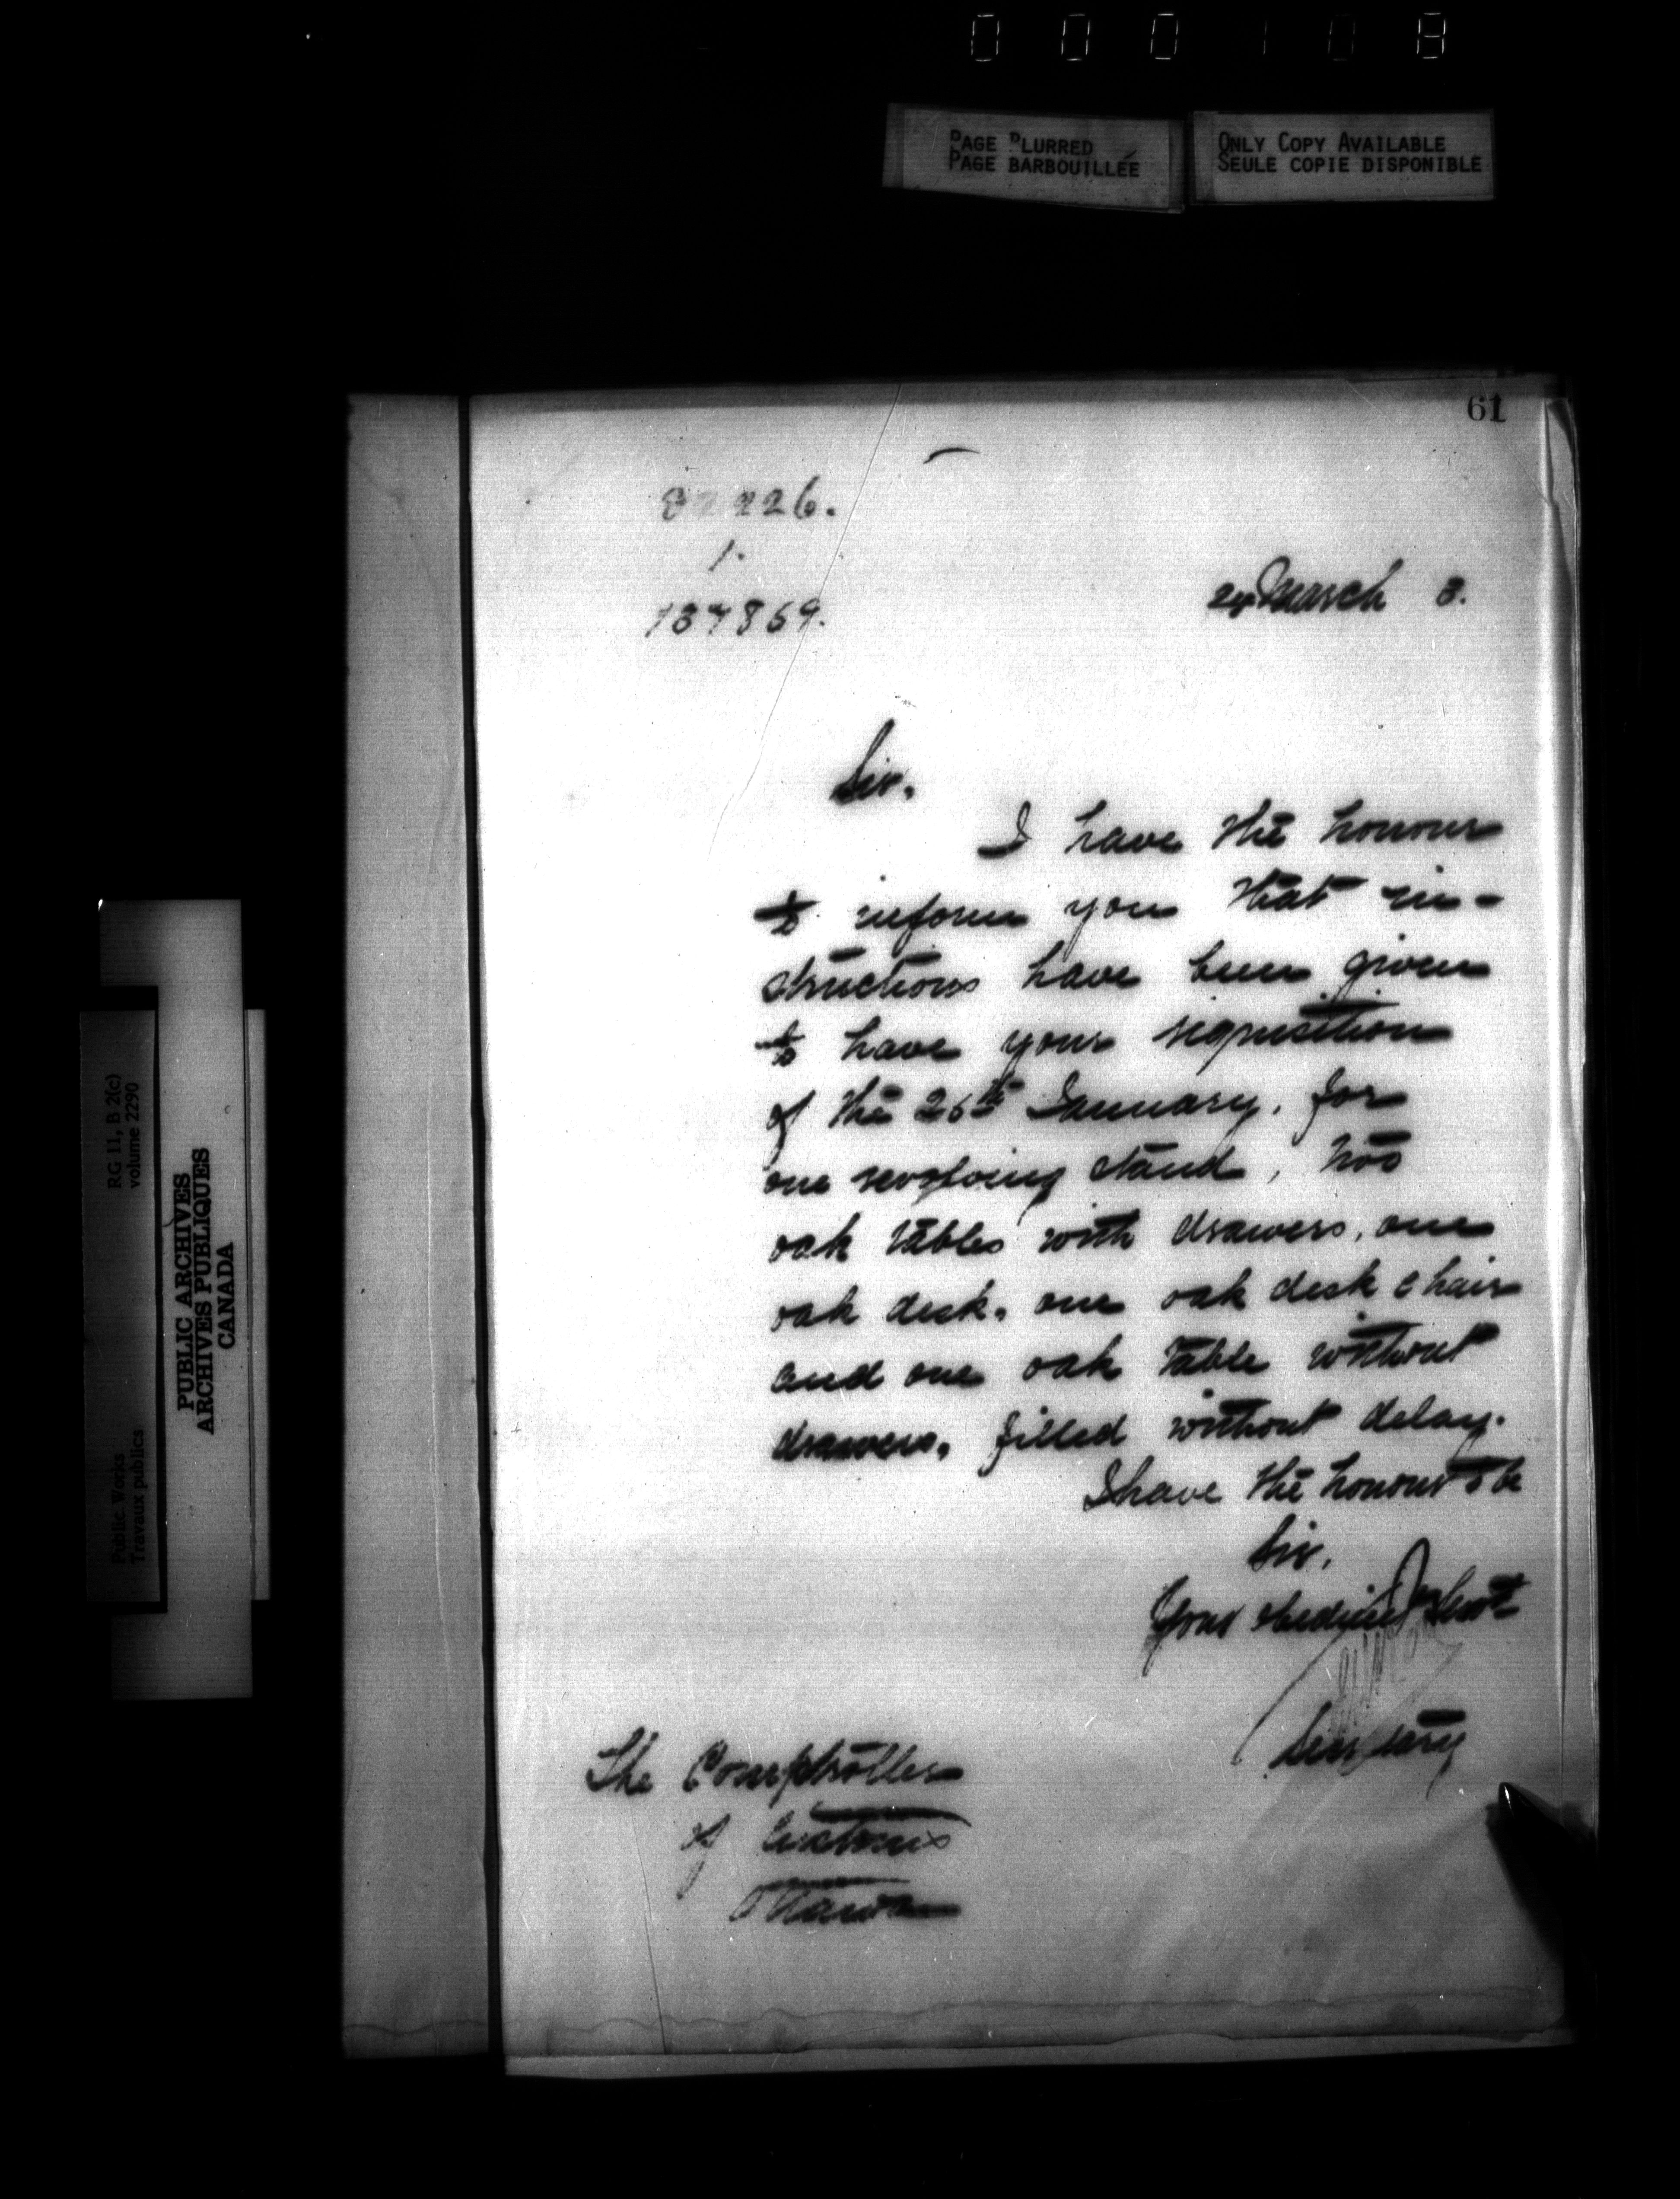 0 0 0 1 0 8
PAGE BLURRED
PAGE BARBOUILLÉE
ONLY COPY AVAILABLE
SEULE COPIE DISPONIBLE
61
226.
1.
137869.
24 March 3.
Sir,
I have the honour
to inform you that in-
structions have been given
to have your requisition
of the 26th January, for
one revolving stand, two
oak tables with drawers, one
oak desk, one oak desk chair
and one oak table without
drawers, filled without delay.
I have the honour to be
Sir,
Your obedient Servt
Secretary
The Comptroller
of Customs
Ottawa
RG 11, B 2(c)
volume 2290
Public Works
Travaux publics
PUBLIC ARCHIVES
ARCHIVES PUBLIQUES
CANADA